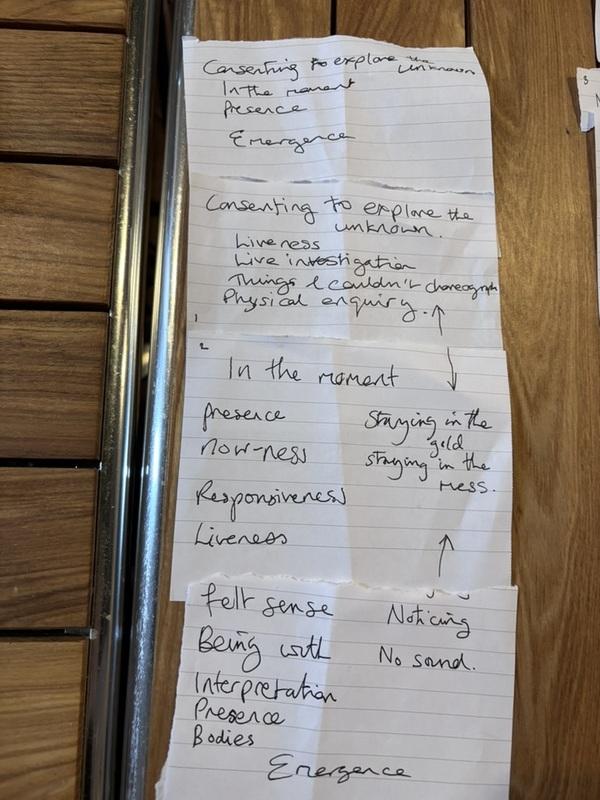 Consenting to explore the
unknown
In the moment
Presence
Emergence
Consenting to explore the
unknown.
Liveness
Live investigation
Things I couldn't choreograph
Physical enquiry.
1
2
In the moment
presence
now-ness
Responsiveness
Liveness
Staying in the
gold
staying in the
mess.
felt sense
Being with
Interpretation
Presence
Bodies
Noticing
No sound.
Emergence
3